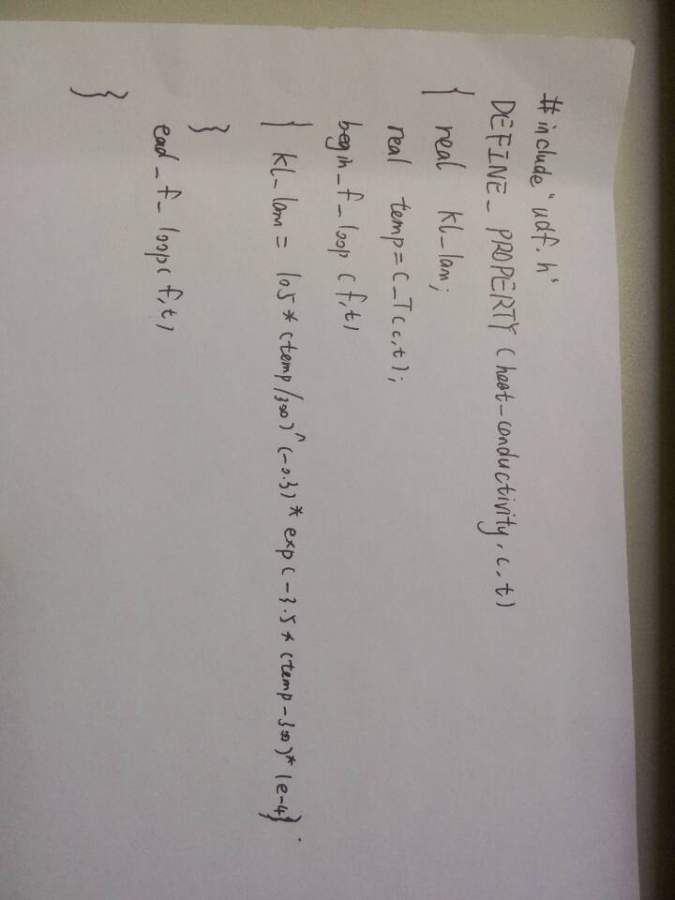 #include "udf.h"
DEFINE_PROPERTY(heat-conductivity,c,t)
{ real kl_lam;
real temp=C_T(c,t);
begin_f_loop(f,t)
{ kl_lam= 105*(temp/300)^(-0.3)*exp(-3.5*(temp-300)*1e-4);
}
end_f_loop(f,t)
}